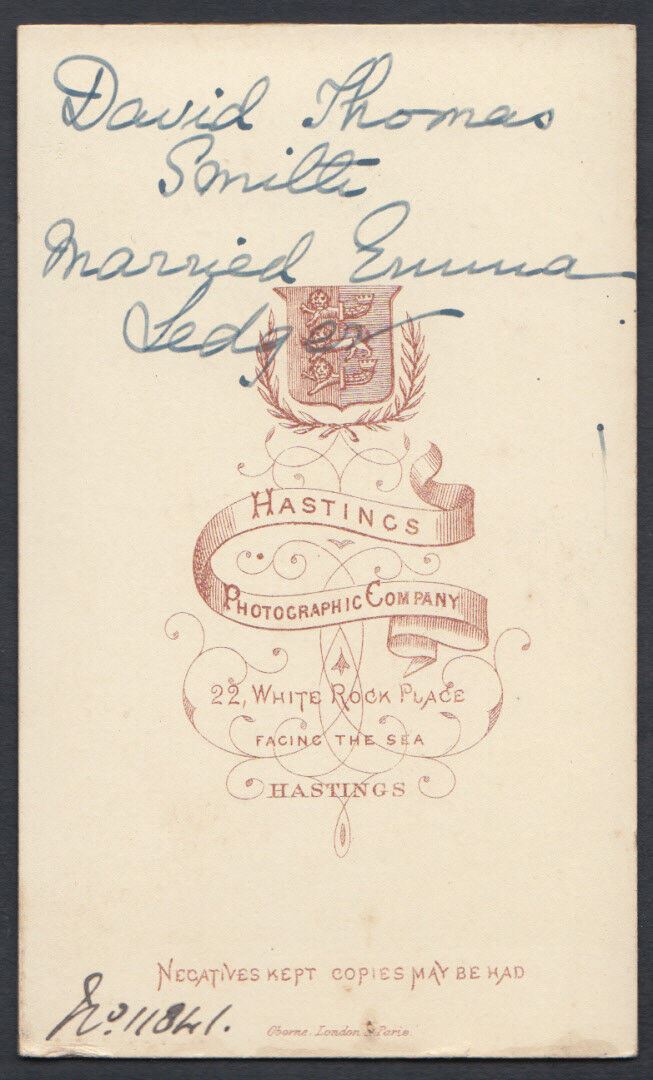 David Thomas
Smith
Married Emma
Ledger
HASTINGS
PHOTOGRAPHIC COMPANY
22, WHITE ROCK PLACE
FACING THE SEA
HASTINGS
NEGATIVES KEPT COPIES MAY BE HAD
No. 11841.
Oborne. London & Paris.